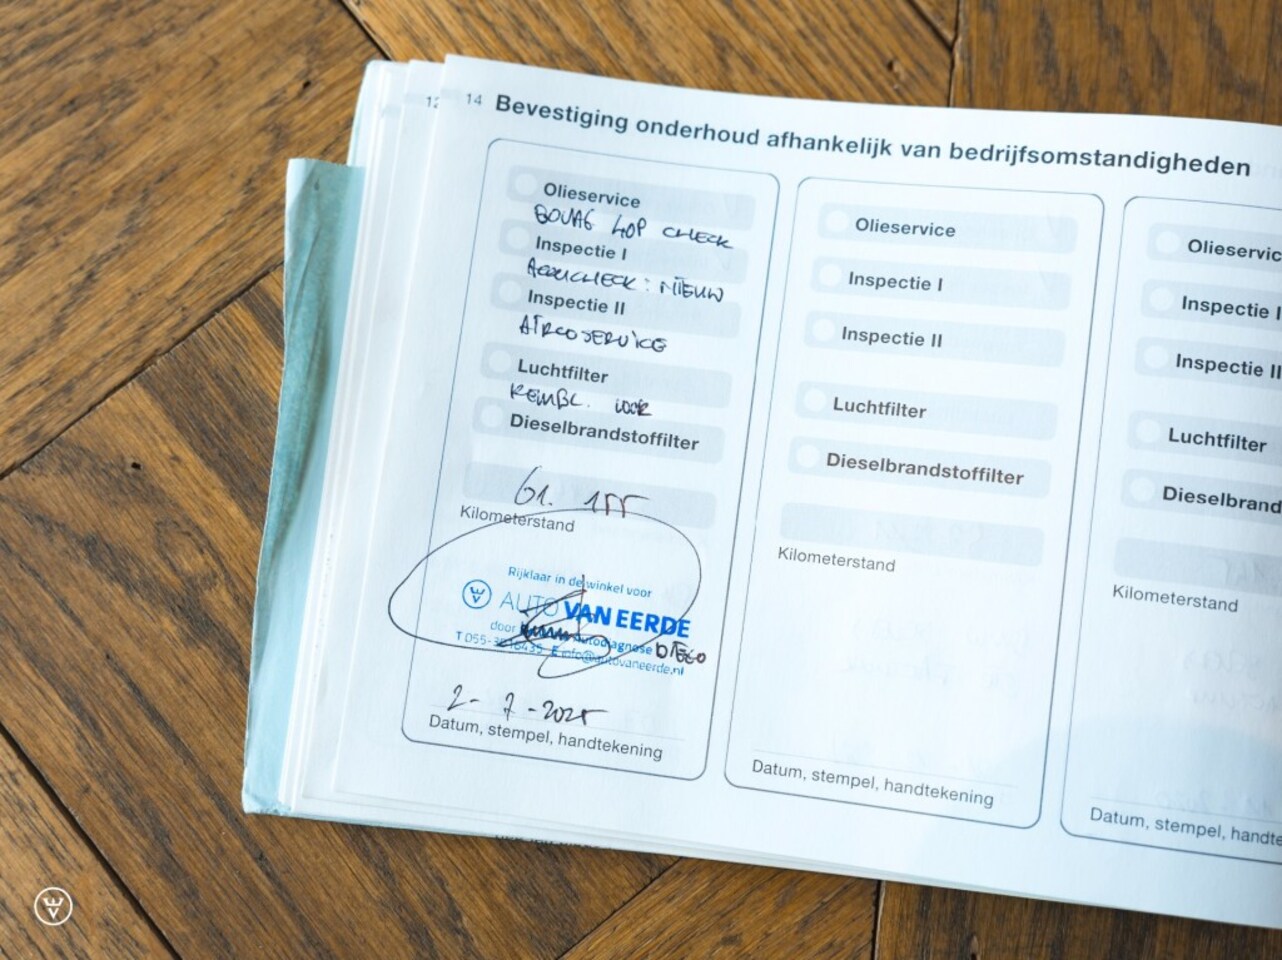 12
14 Bevestiging onderhoud afhankelijk van bedrijfsomstandigheden
Olieservice
BOVAG 40P CHECK
Inspectie I
ACCUCHECK: NIEUW
Inspectie II
AIRCOSERVICE
Luchtfilter
REMBL. VOOR
Dieselbrandstoffilter
61.155
Kilometerstand
Rijklaar in de winkel voor
AUTO VAN EERDE
door autodiagnose DIEGO
T 055- E info@autovaneerde.nl
2-7-2025
Datum, stempel, handtekening
Olieservice
Inspectie I
Inspectie II
Luchtfilter
Dieselbrandstoffilter
Kilometerstand
Datum, stempel, handtekening
Olieservic
Inspectie I
Inspectie II
Luchtfilter
Dieselbrand
Kilometerstand
Datum, stempel, handte